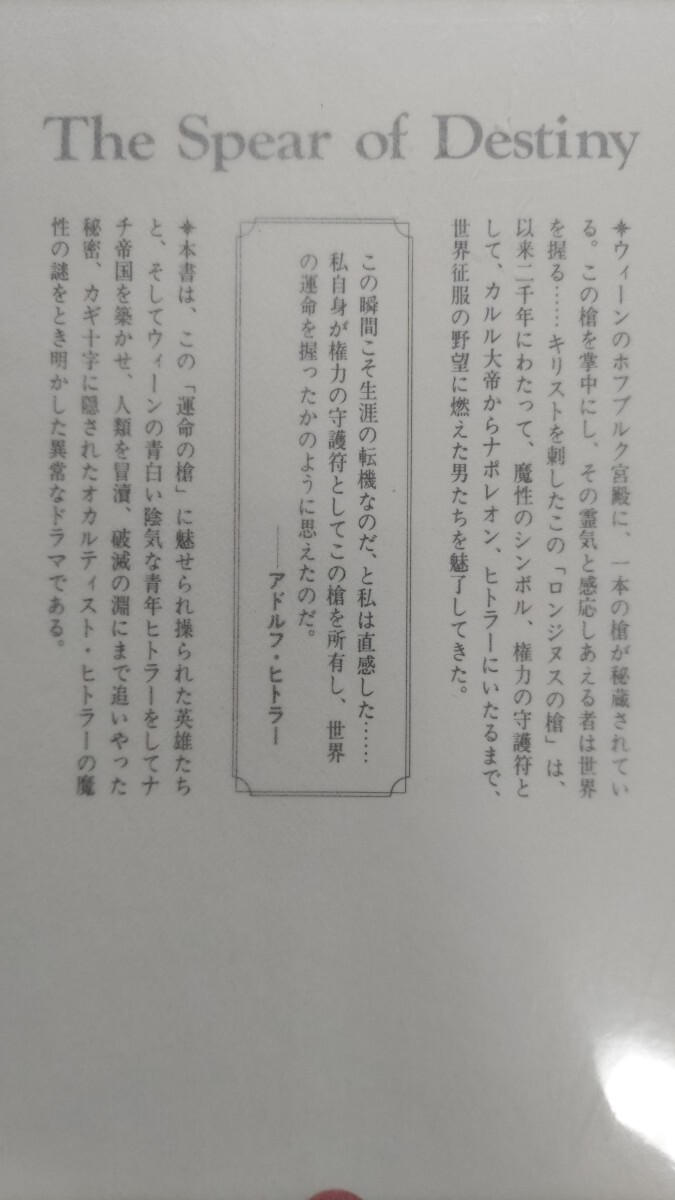 The Spear of Destiny
✦ウィーンのホフブルク宮殿に、一本の槍が秘蔵されてい
る。この槍を掌中にし、その霊気と感応しあえる者は世界
を握る……キリストを刺したこの「ロンジヌスの槍」は、
以来二千年にわたって、魔性のシンボル、権力の守護符と
して、カルル大帝からナポレオン、ヒトラーにいたるまで、
世界征服の野望に燃えた男たちを魅了してきた。
この瞬間こそ生涯の転機なのだ、と私は直感した……
私自身が権力の守護符としてこの槍を所有し、世界
の運命を握ったかのように思えたのだ。
――アドルフ・ヒトラー
✦本書は、この「運命の槍」に魅せられ操られた英雄たち
と、そしてウィーンの青白い陰気な青年ヒトラーをしてナ
チ帝国を築かせ、人類を冒瀆、破滅の淵にまで追いやった
秘密、カギ十字に隠されたオカルティスト・ヒトラーの魔
性の謎をとき明かした異常なドラマである。